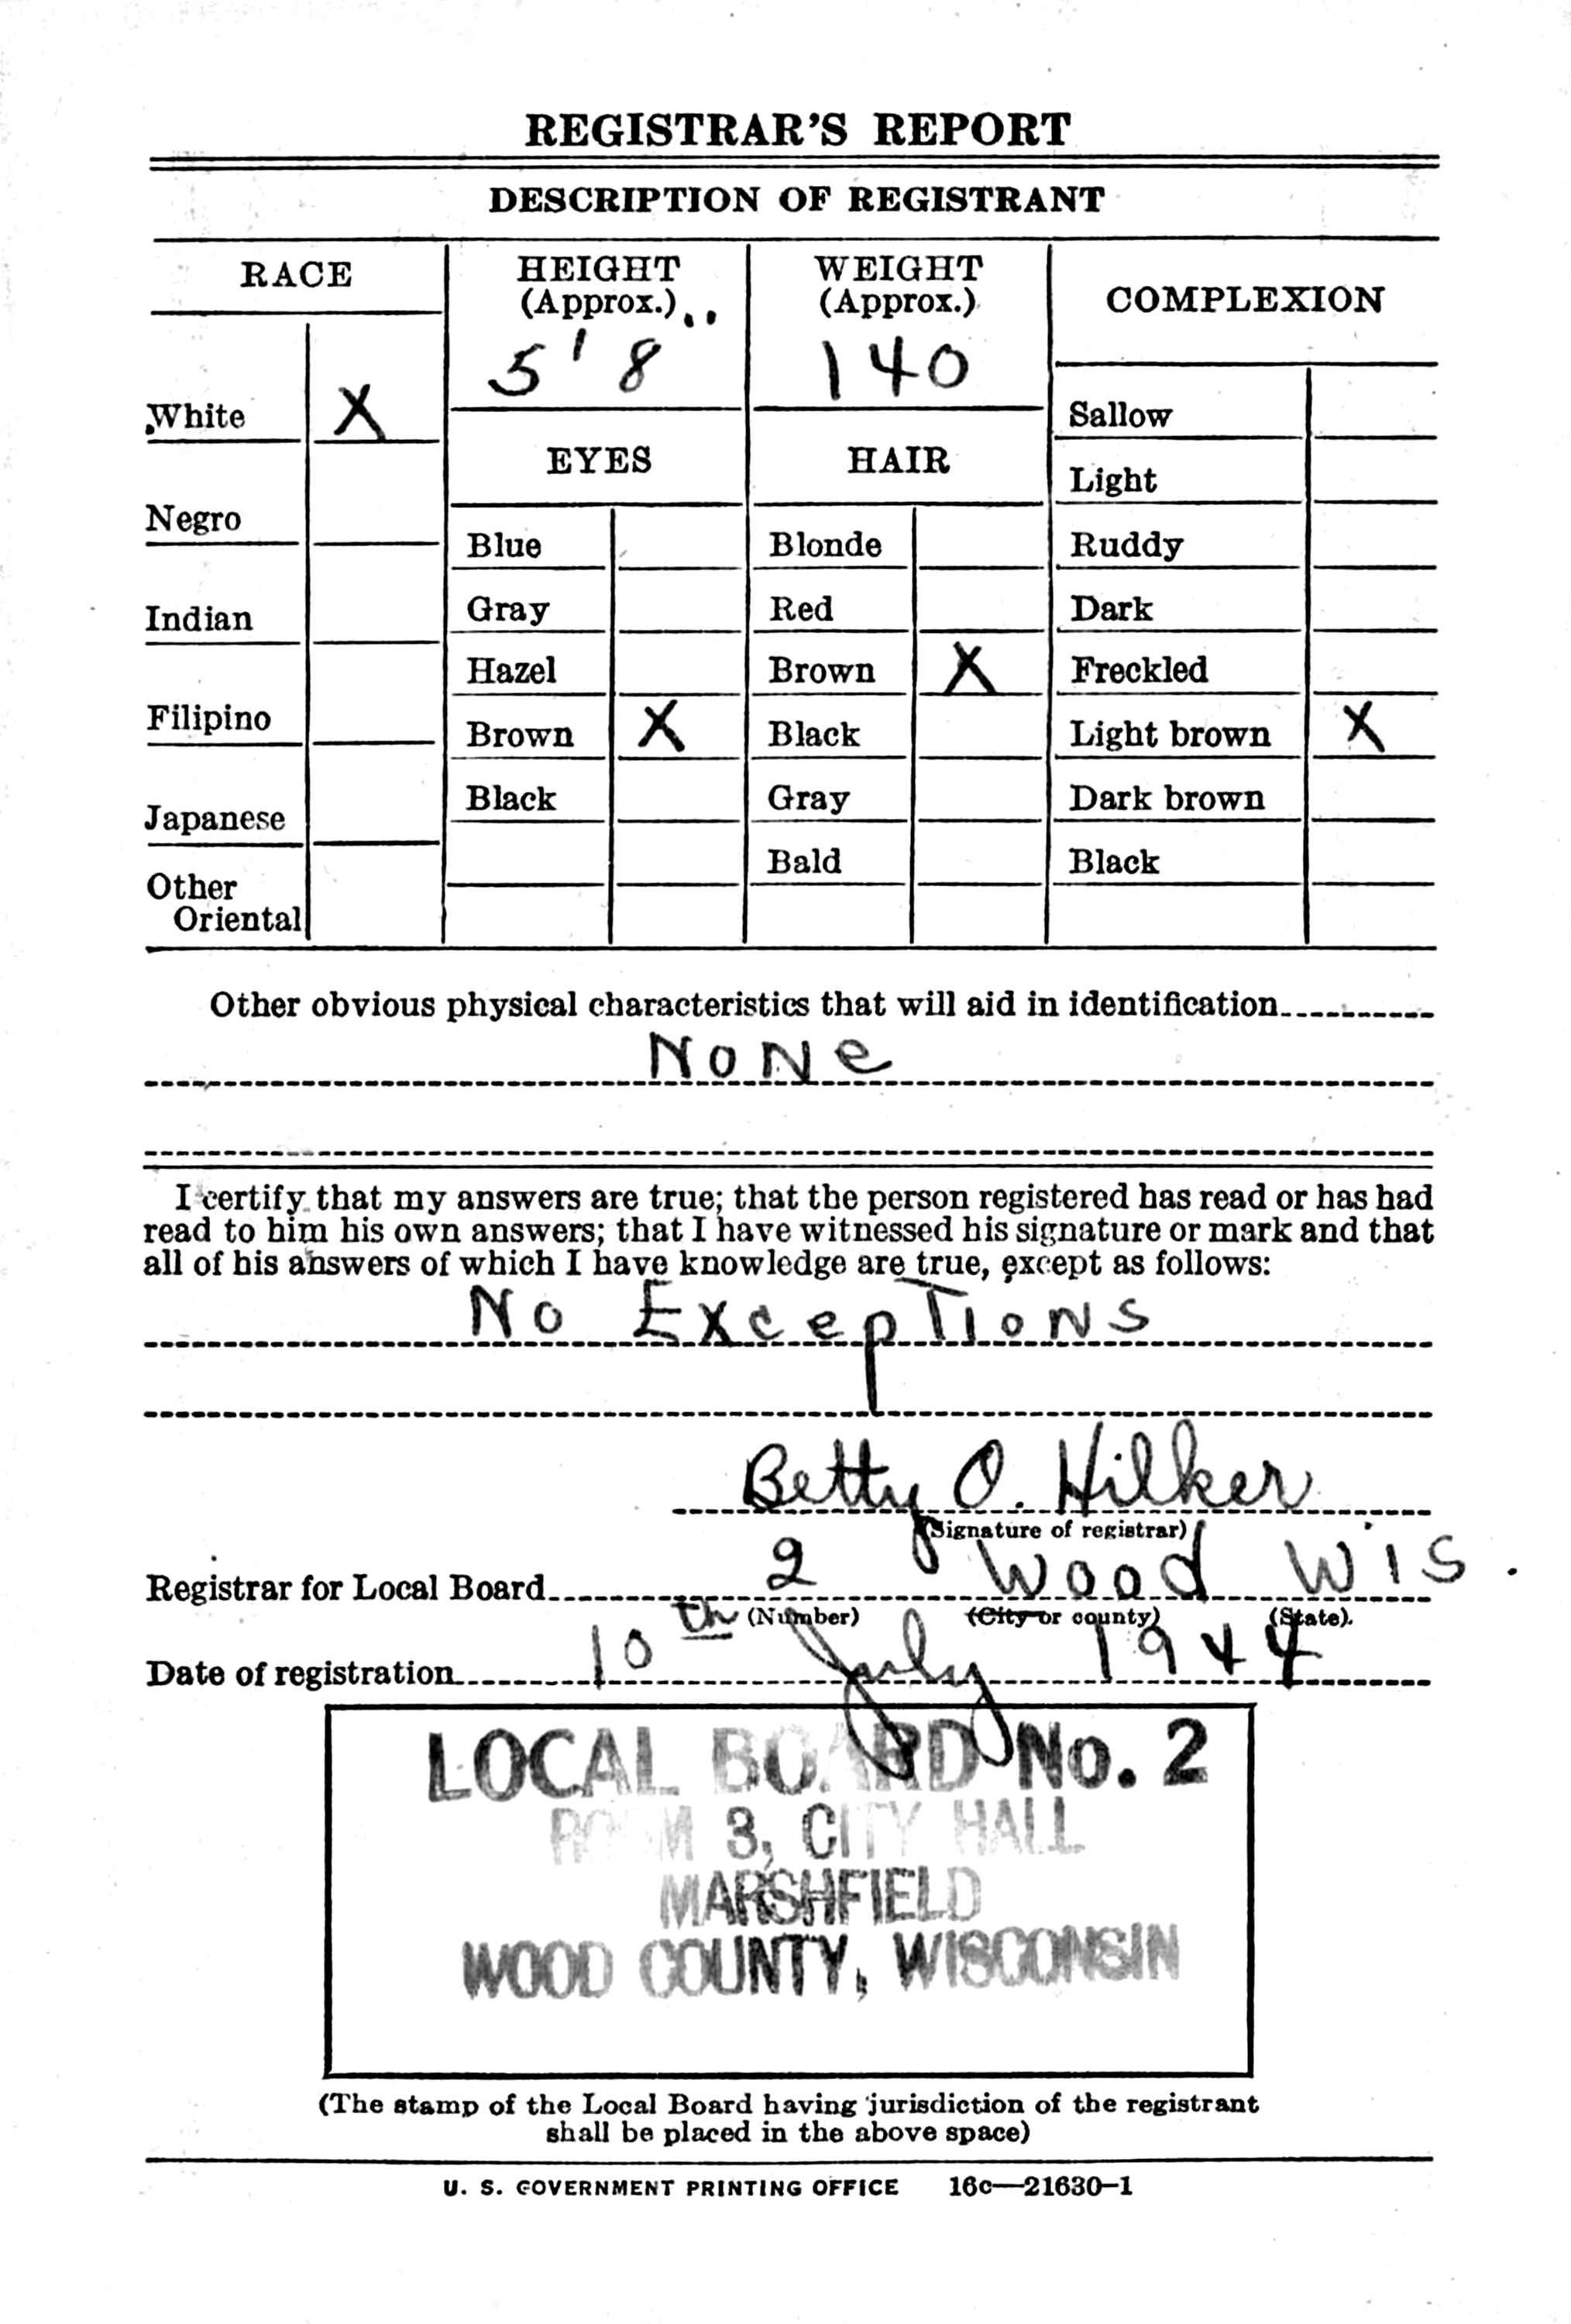 REGISTRAR'S REPORT
DESCRIPTION OF REGISTRANT
RACE
HEIGHT
(Approx.)
5' 8"
WEIGHT
(Approx.)
140
COMPLEXION
White X
Negro
Indian
Filipino
Japanese
Other
Oriental
EYES
Blue
Gray
Hazel
Brown X
Black
HAIR
Blonde
Red
Brown X
Black
Gray
Bald
Sallow
Light
Ruddy
Dark
Freckled
Light brown X
Dark brown
Black
Other obvious physical characteristics that will aid in identification
None
I certify that my answers are true; that the person registered has read or has had
read to him his own answers; that I have witnessed his signature or mark and that
all of his answers of which I have knowledge are true, except as follows:
No Exceptions
Betty O. Hilker
(Signature of registrar)
Registrar for Local Board 2 Wood Wis.
(Number) (City or county) (State)
Date of registration 10th July 1944
LOCAL BOARD No. 2
ROOM 3, CITY HALL
MARSHFIELD
WOOD COUNTY, WISCONSIN
(The stamp of the Local Board having jurisdiction of the registrant
shall be placed in the above space)
U. S. GOVERNMENT PRINTING OFFICE 16c—21630-1